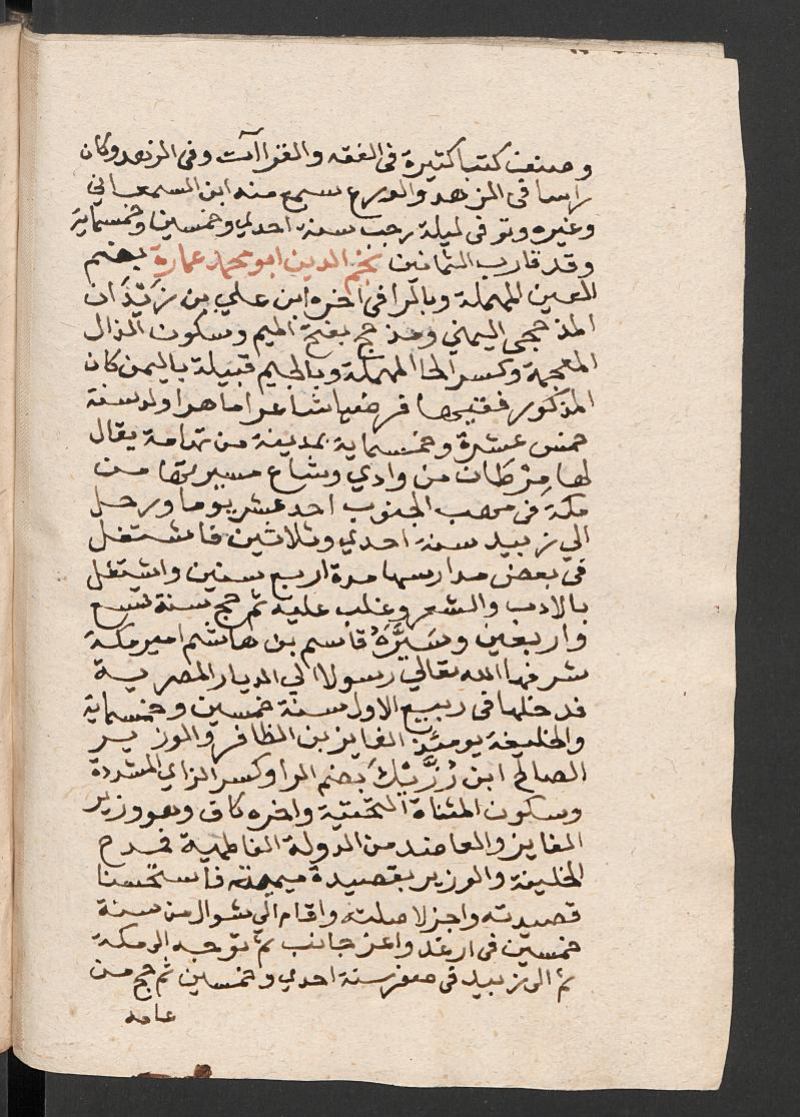 وصنف كتبا كثيرة فى الفقه والقراآت وفى الزهد وكان
راسا فى الزهد والورع سمع منه ابن السمعاني
وغيره وتوفى ليلة رجب سنة احدي وخمسين وخمسماية
وقد قارب الثمانين نجم الدين ابو محمد عمارة بضم
العين المهملة وبالرا فى اخره ابن علي بن زَيْدَان
المذحجى اليمني ومذحج بفتح الميم وسكون الذال
المعجمة وكسر الحا المهملة وبالجيم قبيلة باليمن كان
المذكور فقيها فرضيا شاعرا ماهرا ولد سنة
خمس عشرة وخمسماية بمدينة من تهامة يقال
لها مرْطَان من وادي وساع مسيرتها من
مكة فى مهب الجنوب احد عشر يوما ورحل
الي زبيد سنة احدي وثلاثين فاشتغل
فى بعض مدارسها مدة اربع سنين واشتغل
بالادب والشعر وغلب عليه ثم حج سنة تسع
واربعين وسَيَّرَهُ قاسم بن هاشم امير مكة
شرفها الله تعالي رسولا الي الديار المصرية
فدخلها فى ربيع الاول سنة خمسين وخمسماية
والخليفة يومئذ الفايز بن الظافر والوزير
الصالح ابن رُزِّيْك بضم الرا وكسر الزاي المشددة
وسكون المثناة التحتية واخره كاف وهو وزير
الفايز والعاضد من الدولة الفاطمية فمدح
الخليفة والوزير بقصيدة ميمية فاستحسنا
قصيدته واجزلا صلته واقام الي شوال من سنة
خمسين فى ارغد واعز جانب ثم توجه الى مكة
ثم الى زبيد فى صفر سنة احدي وخمسين ثم حج من
عامه